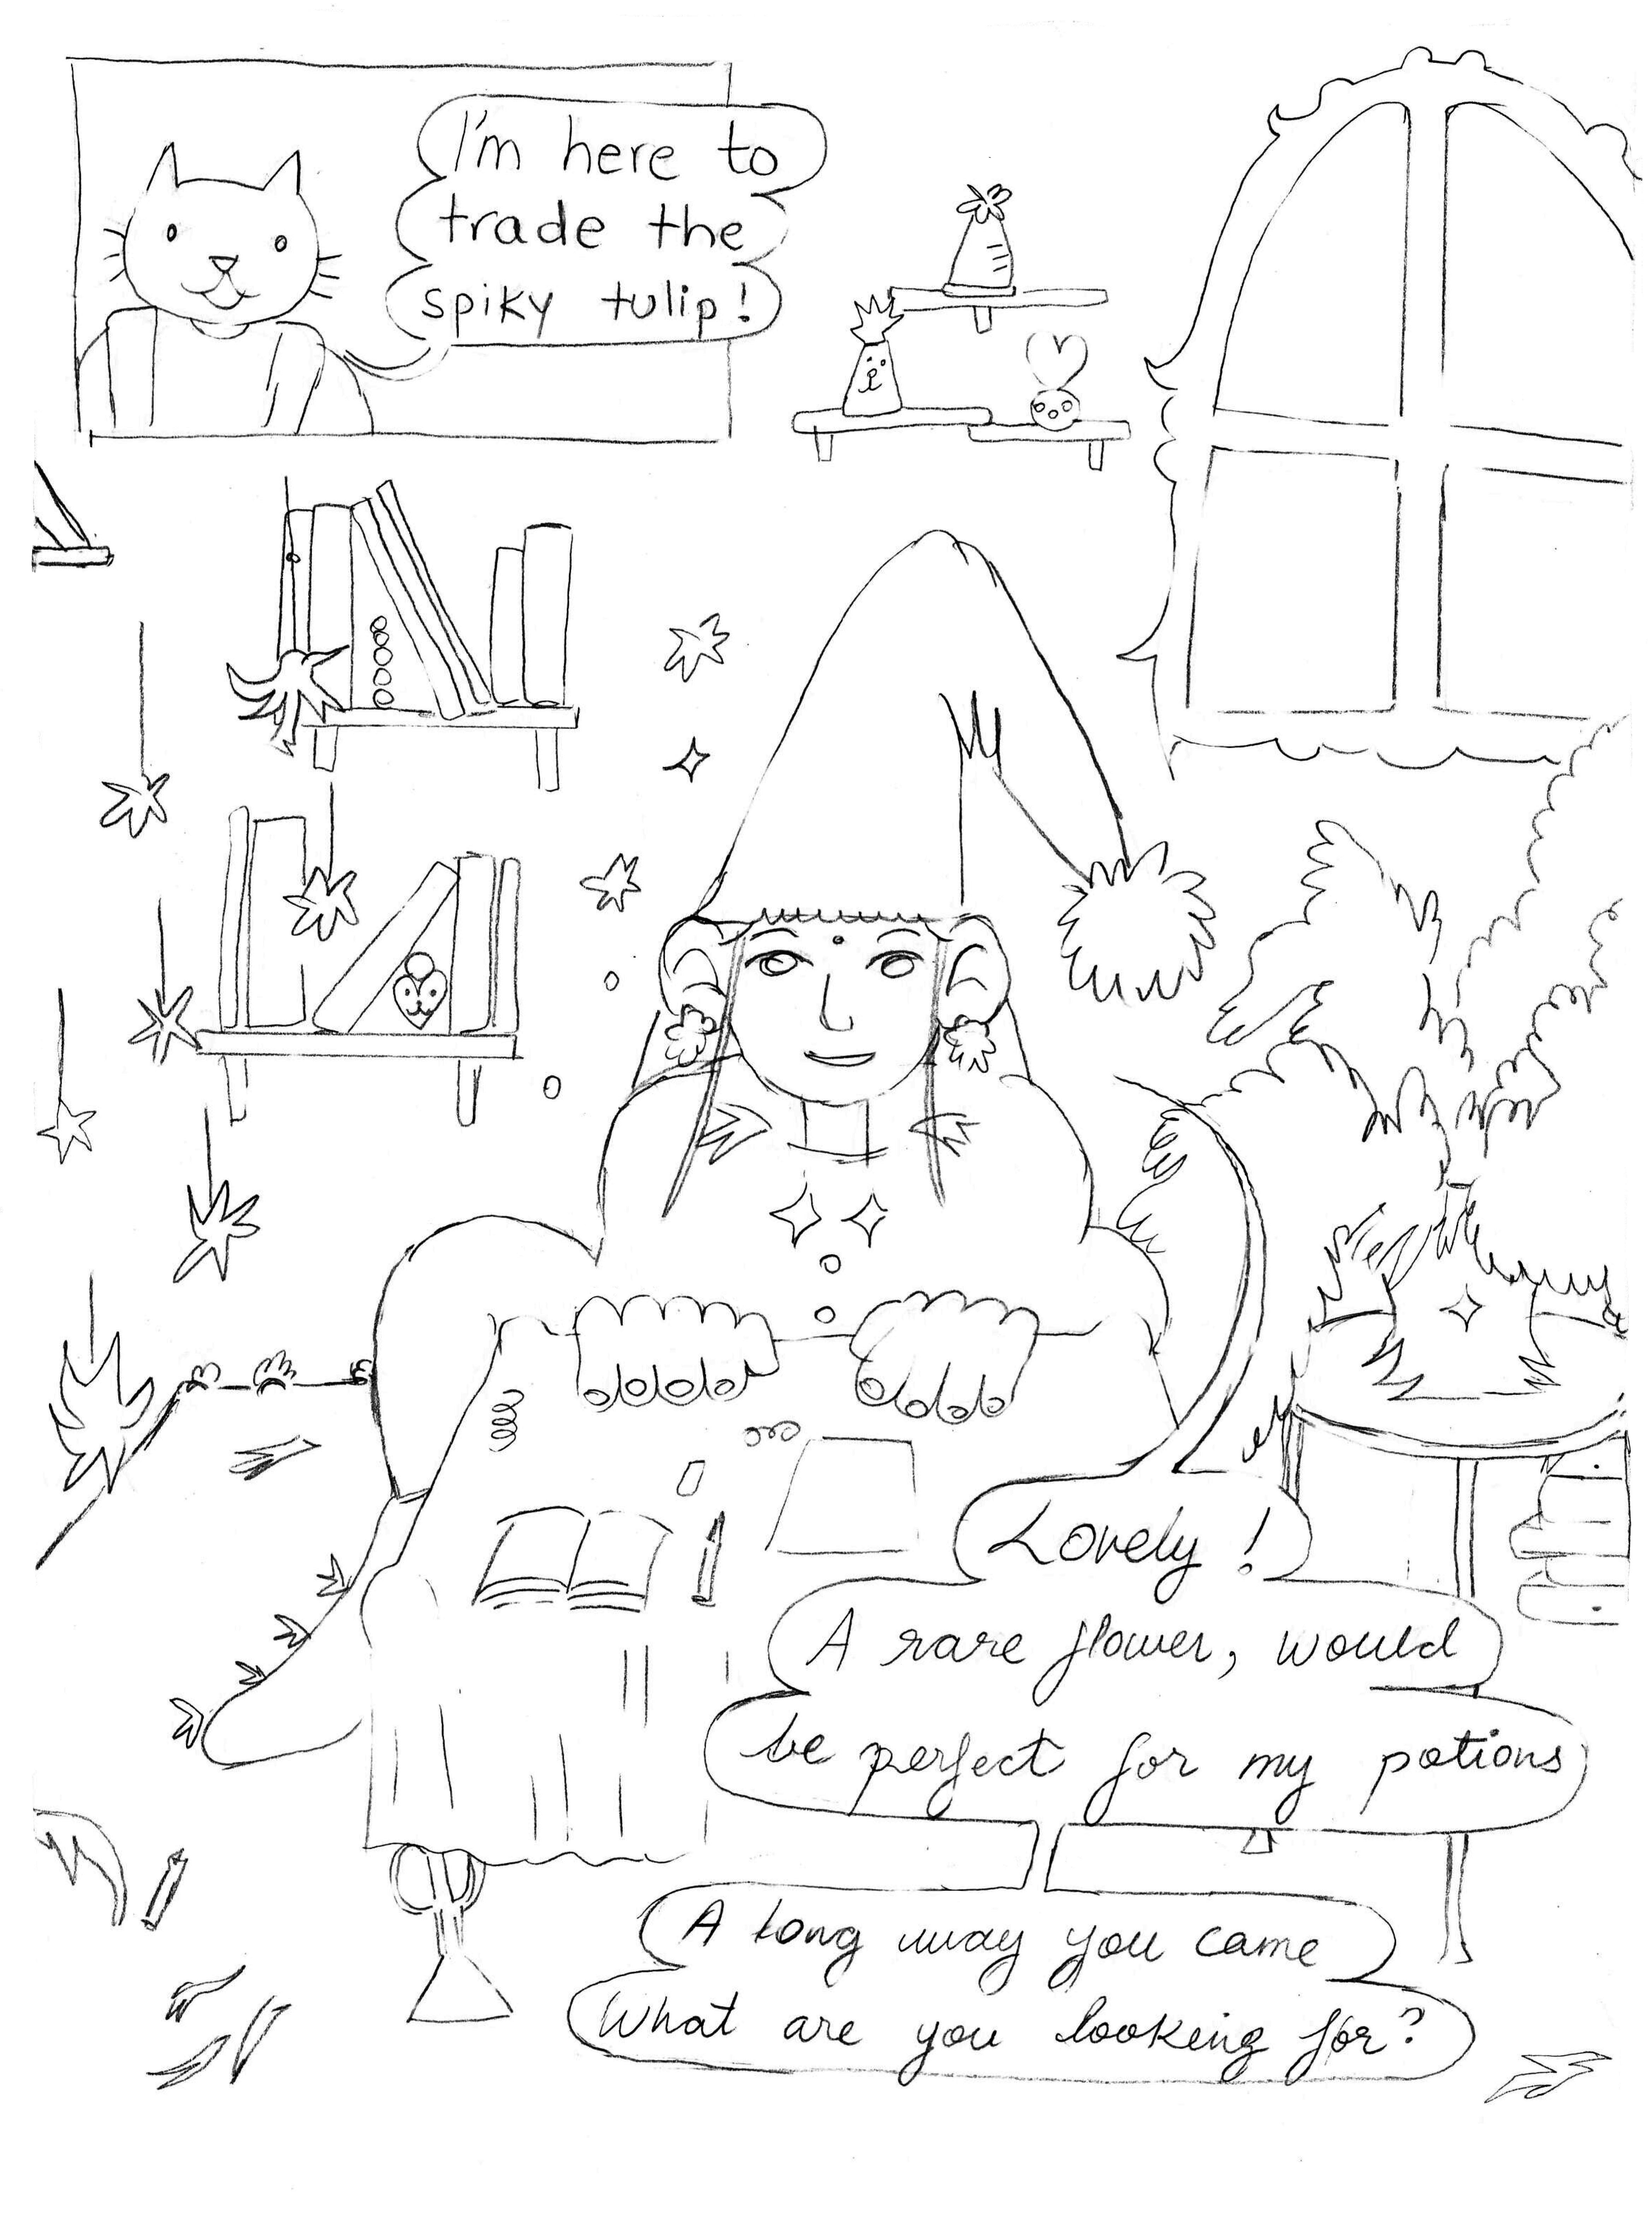 I'm here to
trade the
spiky tulip!
Lovely!
A rare flower, would
be perfect for my potions
A long way you came
What are you looking for?